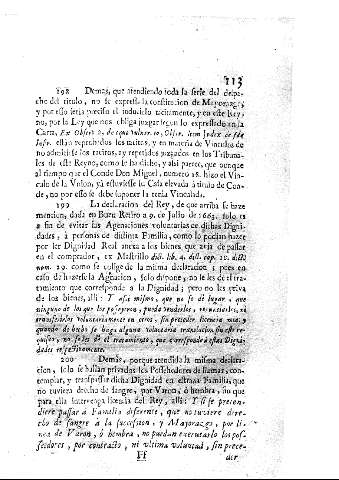 113
198 Demas, que atendiendo toda la serie del despa-
che del titulo, no se expressa la constitucion de Mayorazgo,
y por esso seria preciso el inducirlo tacitamente, y en este Rey-
no, por la Ley que nos obliga juzgar segun lo expressado en la
Carta, Ex Observ. Item Index de fide
Instr. estàn reprobados los tacitos, y en materia de Vinculos de
no admitirse los tacitos, ay repetidos juzgados en los Tribuna-
les de este Reyno, como se ha dicho, y assi parece, que aunque
al tiempo que el Conde Don Miguel, numero 28. hizo el Vin-
culo de la Vnion, yà estuviesse la Casa elevada à titulo de Con-
de, no por esso se debe suponer la tenia Vinculada.
199 La declaracion del Rey, de que arriba se haze
mencion, dada en Buen Retiro a 9. de Julio de 1663. solo es
a fin de evitar las Agnaciones voluntarias de dichas Digni-
dades, à personas de distinta Familia, como lo podian hazer
por ser Dignidad Real anexa a los bienes, que avia de passar
en el comprador, ex Mastrillo dict. lib. 4. dict. cap. 21. dict.
num. 29. como se colige de la misma declaracion; pues en
caso de hazerse la Agnacion, solo dispone, no se les dè el tra-
tamiento que corresponde a la Dignidad; pero no les priva
de los bienes, alli: Y assi mismo, que no se dè lugar, a que
ninguno de los que los posseyeren, pueda venderlos, renunciarlos, ni
transferirlos voluntariamente en otros, sin preceder licencia mia, y
quando de hecho se haga alguna voluntaria translacion sin este re-
quisito, no se les dè el tratamiento, que corresponde à estas Digni-
dades respectivamente.
200 Demàs, porque atendida la misma declara-
cion, solo se hallan privados los Possehedores de llamar, con-
templar, y transpassar dicha Dignidad en estraña Familia, que
no tuviera derecho de sangre, por Varon, ò hembra, sin que
para ella intervenga licencia del Rey, alli: Y si se preten-
diere passar à Familia diferente, que no tuviere dere-
cho de sangre à la succession, y Mayorazgo, por li-
nea de Varon, ò hembra, no puedan executarlo los pos-
seedores, por contracto, ni ultima voluntad, sin prece-
Ff der